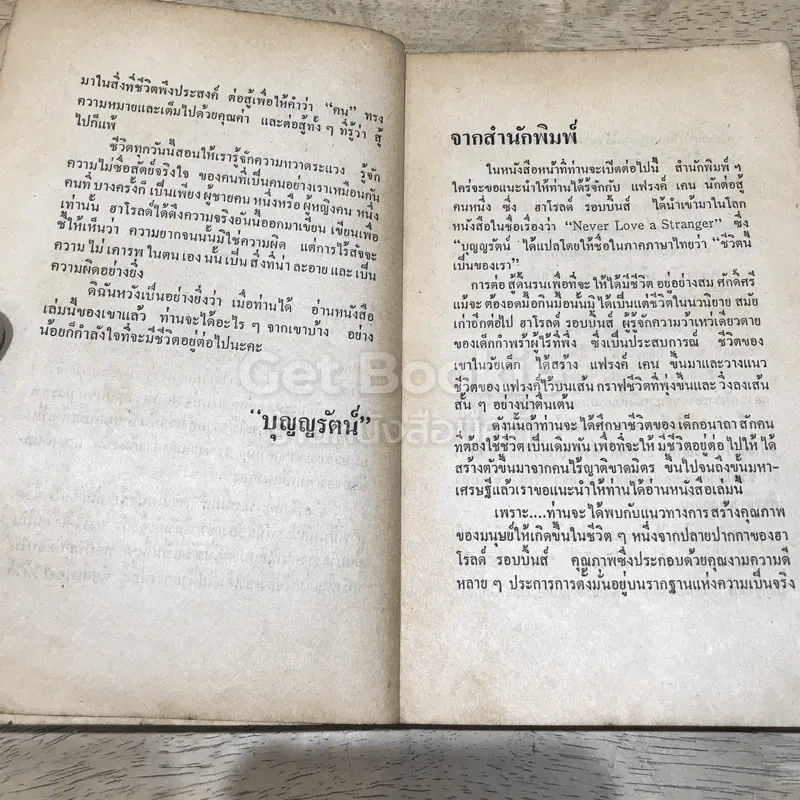 มาในสิ่งที่ชีวิตพึงประสงค์ ต่อสู้เพื่อให้คำว่า “คน” ทรง
ความหมายและเต็มไปด้วยคุณค่า และต่อสู้ทั้ง ๆ ที่รู้ว่า สู้
ไปก็แพ้
ชีวิตทุกวันนี้สอนให้เรารู้จักความหวาดระแวง รู้จัก
ความไม่ซื่อสัตย์จริงใจ ของคนที่เป็นคนอย่างเราเหมือนกัน
คนที่ บางครั้งก็ เป็นเพียง ผู้ชายคน หนึ่งหรือ ผู้หญิงคน หนึ่ง
เท่านั้น ฮาโรลด์ได้ดึงความจริงอันนี้ออกมาเขียน เขียนเพื่อ
ชี้ให้เห็นว่า ความยากจนนั้นมิใช่ความผิด แต่การไร้สัจจะ
ความ ไม่ เคารพ ในตน เอง นั้น เป็น สิ่งที่น่า ละอาย และ เป็น
ความผิดอย่างยิ่ง
ดิฉันหวังเป็นอย่างยิ่งว่า เมื่อท่านได้ อ่านหนังสือ
เล่มนี้ของเขาแล้ว ท่านจะได้อะไร ๆ จากเขาบ้าง อย่าง
น้อยก็กำลังใจที่จะมีชีวิตอยู่ต่อไปนะคะ
“บุญญรัตน์”
จากสำนักพิมพ์
ในหนังสือหน้าที่ท่านจะเปิดต่อไปนี้ สำนักพิมพ์ ๆ
ใคร่จะขอแนะนำให้ท่านได้รู้จักกับ แฟรงค์ เคน นักต่อสู้
คนหนึ่ง ซึ่ง ฮาโรลด์ รอบบิ้นส์ ได้นำเข้ามาในโลก
หนังสือในชื่อเรื่องว่า “Never Love a Stranger” ซึ่ง
“บุญญรัตน์” ได้แปลโดยให้ชื่อในภาคภาษาไทยว่า “ชีวิตนี้
เป็นของเรา”
การต่อ สู้ดิ้นรนเพื่อที่จะ ให้ได้มีชีวิต อยู่อย่างสม ศักดิ์ศรี
แม้จะ ต้องอดมื้อกินมื้อนั้นมิ ได้เป็นแต่ชีวิตในนวนิยาย สมัย
เก่าอีกต่อไป ฮาโรลด์ รอบบิ้นส์ ผู้รู้จักความว้าเหว่เดียวดาย
ของเด็กกำพร้าผู้ไร้ที่พึ่ง ซึ่งเป็นประสบการณ์ ชีวิตของ
เขาในวัยเด็ก ได้สร้าง แฟรงค์ เคน ขึ้นมาและวางแนว
ชีวิตของ แฟรงค์ไว้บนเส้น กราฟชีวิตที่พุ่งขึ้นและ วิ่งลงเส้น
สั้น ๆ อย่างน่าตื่นเต้น
ดังนั้นถ้าท่านจะ ได้ศึกษาชีวิตของ เด็กอนาถา สักคน
ที่ต้องใช้ชีวิต เป็นเดิมพัน เพื่อที่จะให้ มีชีวิต อยู่ต่อ ไปให้ ได้
สร้างตัวขึ้นมาจากคนไร้ญาติขาดมิตร ขึ้นไปจนถึงขั้นมหา-
เศรษฐีแล้วเราขอแนะนำให้ท่านได้อ่านหนังสือเล่มนี้
เพราะ....ท่านจะ ได้พบกับแนวทางการ สร้างคุณภาพ
ของมนุษย์ให้เกิดขึ้นในชีวิต ๆ หนึ่งจากปลายปากกาของฮา
โรลด์ รอบบิ้นส์ คุณภาพซึ่งประกอบด้วยคุณงามความดี
หลาย ๆ ประการการตั้งมั่นอยู่บนรากฐานแห่งความเป็นจริง